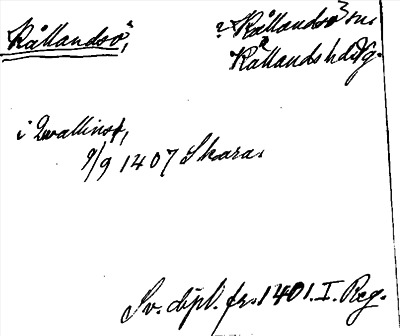 Kållandsö,
? Kållandsö sn.
Kållands hd Vg.
i Qvallinsö,
9/9 1407 Skara.
Sv. dipl. fr. 1401. I. Reg.